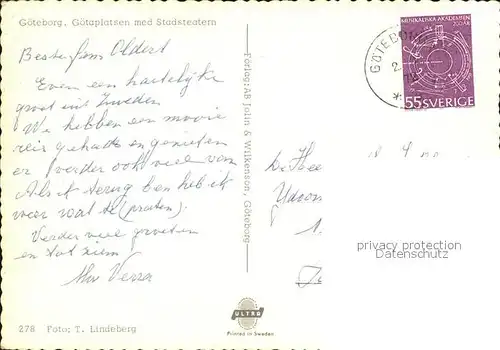 Göteborg. Götaplatsen med Stadsteatern
Beste fam Oldert
Even een hartelijke
groet uit Zweden
We hebben een mooie
reis gehad en genieten
er verder ook veel van
Als ik terug ben heb ik
weer wat te (praten).
Verder veel groeten
en tot ziens
278 Foto: T. Lindeberg
Förlag: AB Jolin & Wilkenson, Göteborg
ULTRA
Printed in Sweden
GÖTEBORG
MUSIKALISKA AKADEMIEN
200 ÅR
55 SVERIGE
privacy protection
Datenschutz